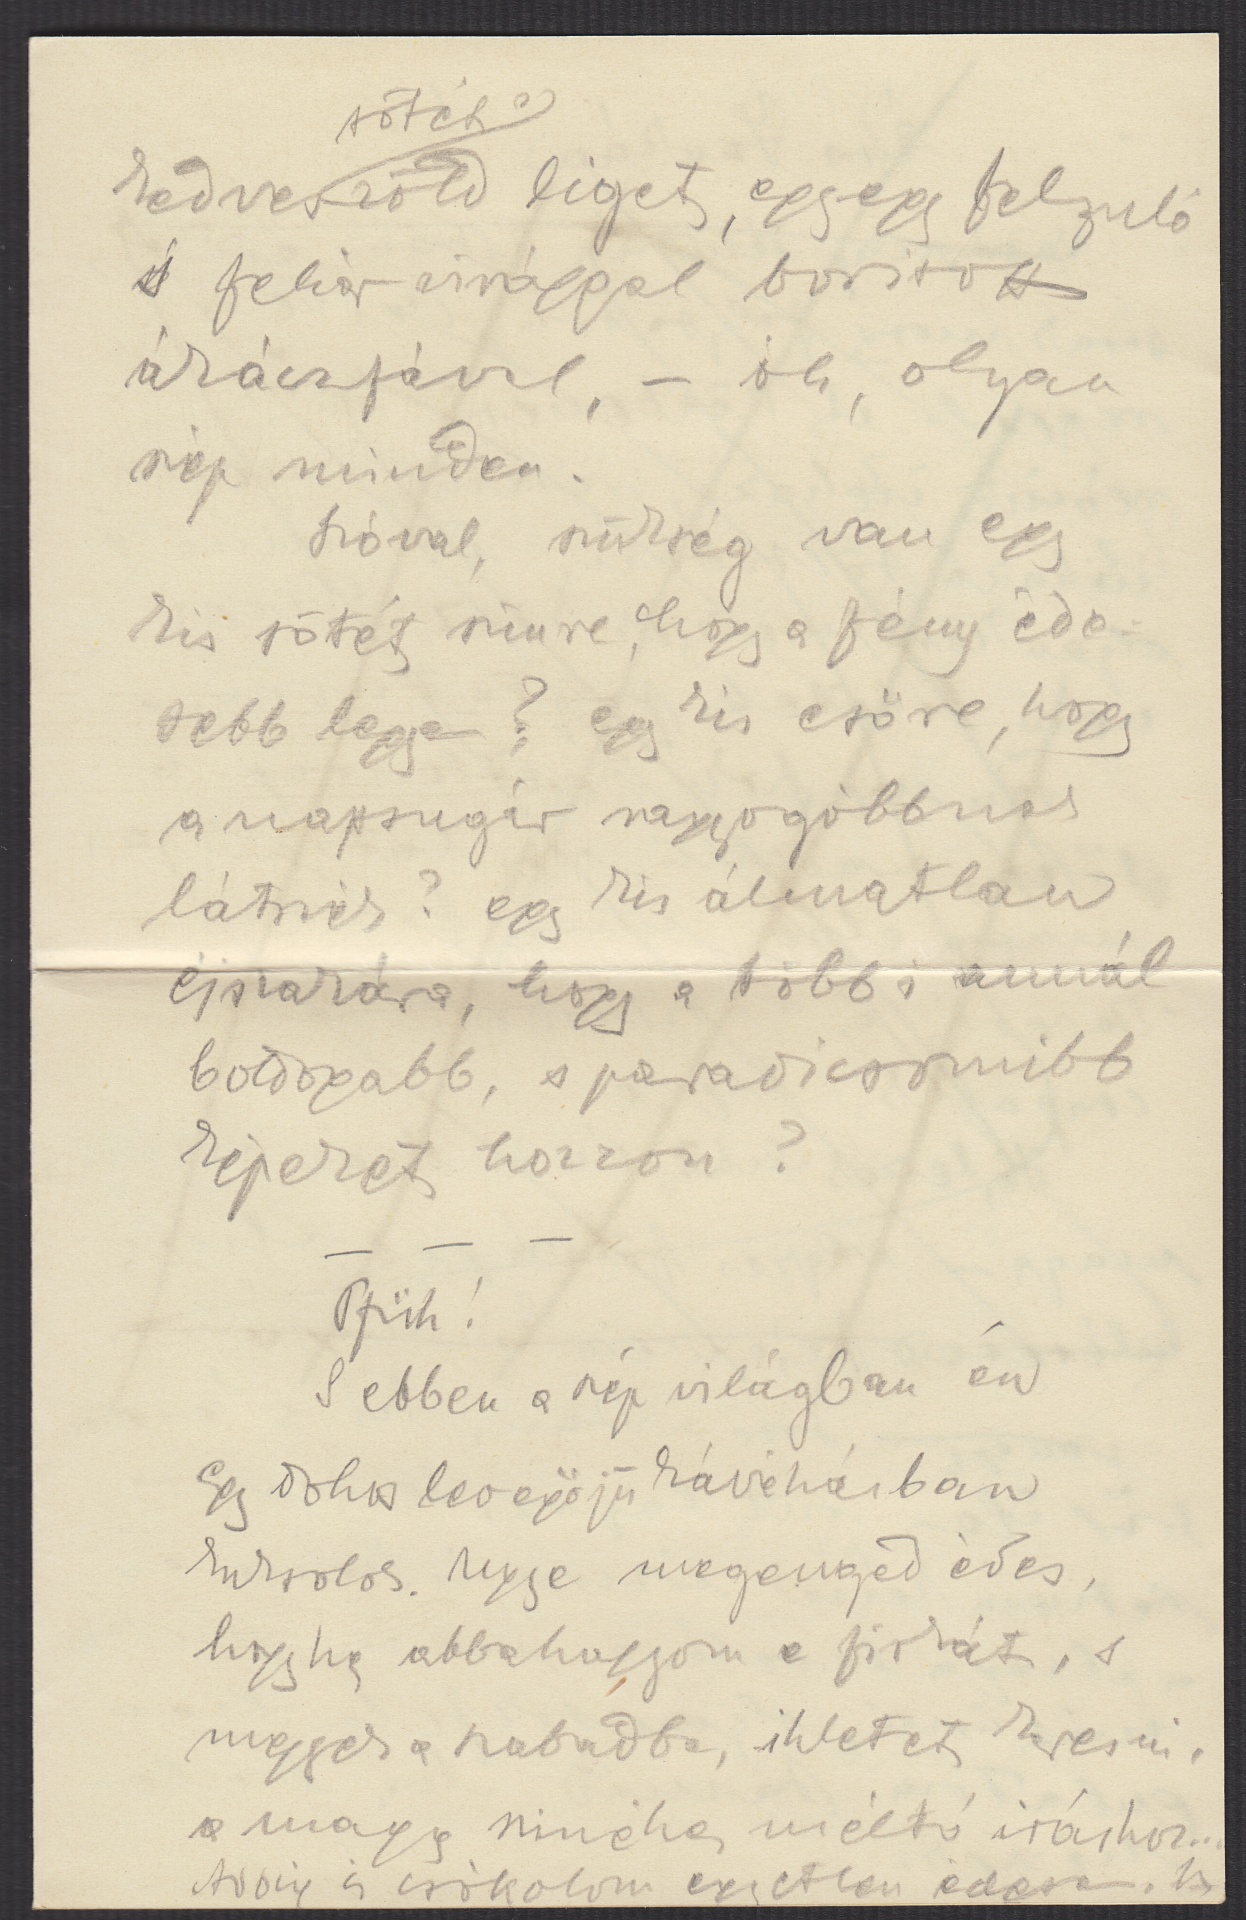 sötét
kedves zöld liget, egy egy felzuló
s fehér virággal borított
ákáczfával, – óh, olyan
szép minden.
Szóval, szükség van egy
kis sötét szinre, hogy a fény éde-
sebb legyen? egy kis esőre, hogy
a napsugár ragyogóbbnak
látszék? egy kis álmatlan
éjszakára, hogy a többi annál
boldogabb, s paradicsomibb
képeket hozzon?
– – –
Pfüh!
S ebben a szép világban én
egy dohos levegőjü kávéházban
kuksolok. Ugye megenged édes,
hogyha abbahagyom a firkát, s
megyek a szabadba, ihletet keresni,
a maga szinéhez méltó iráshoz...
Addig is csókolom egyetlen édesem.